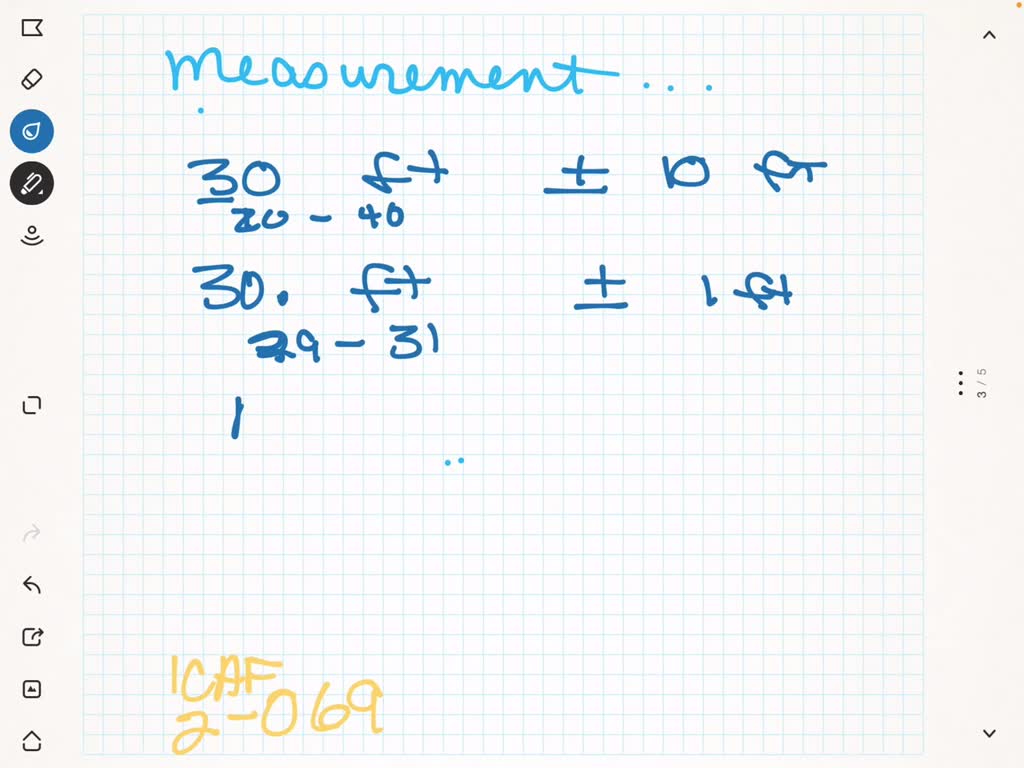 Measurement ...
30 ft ± 10 ft
20 - 40
30. ft ± 1 ft
29 - 31
1
3 / 5
ICAF
2-069